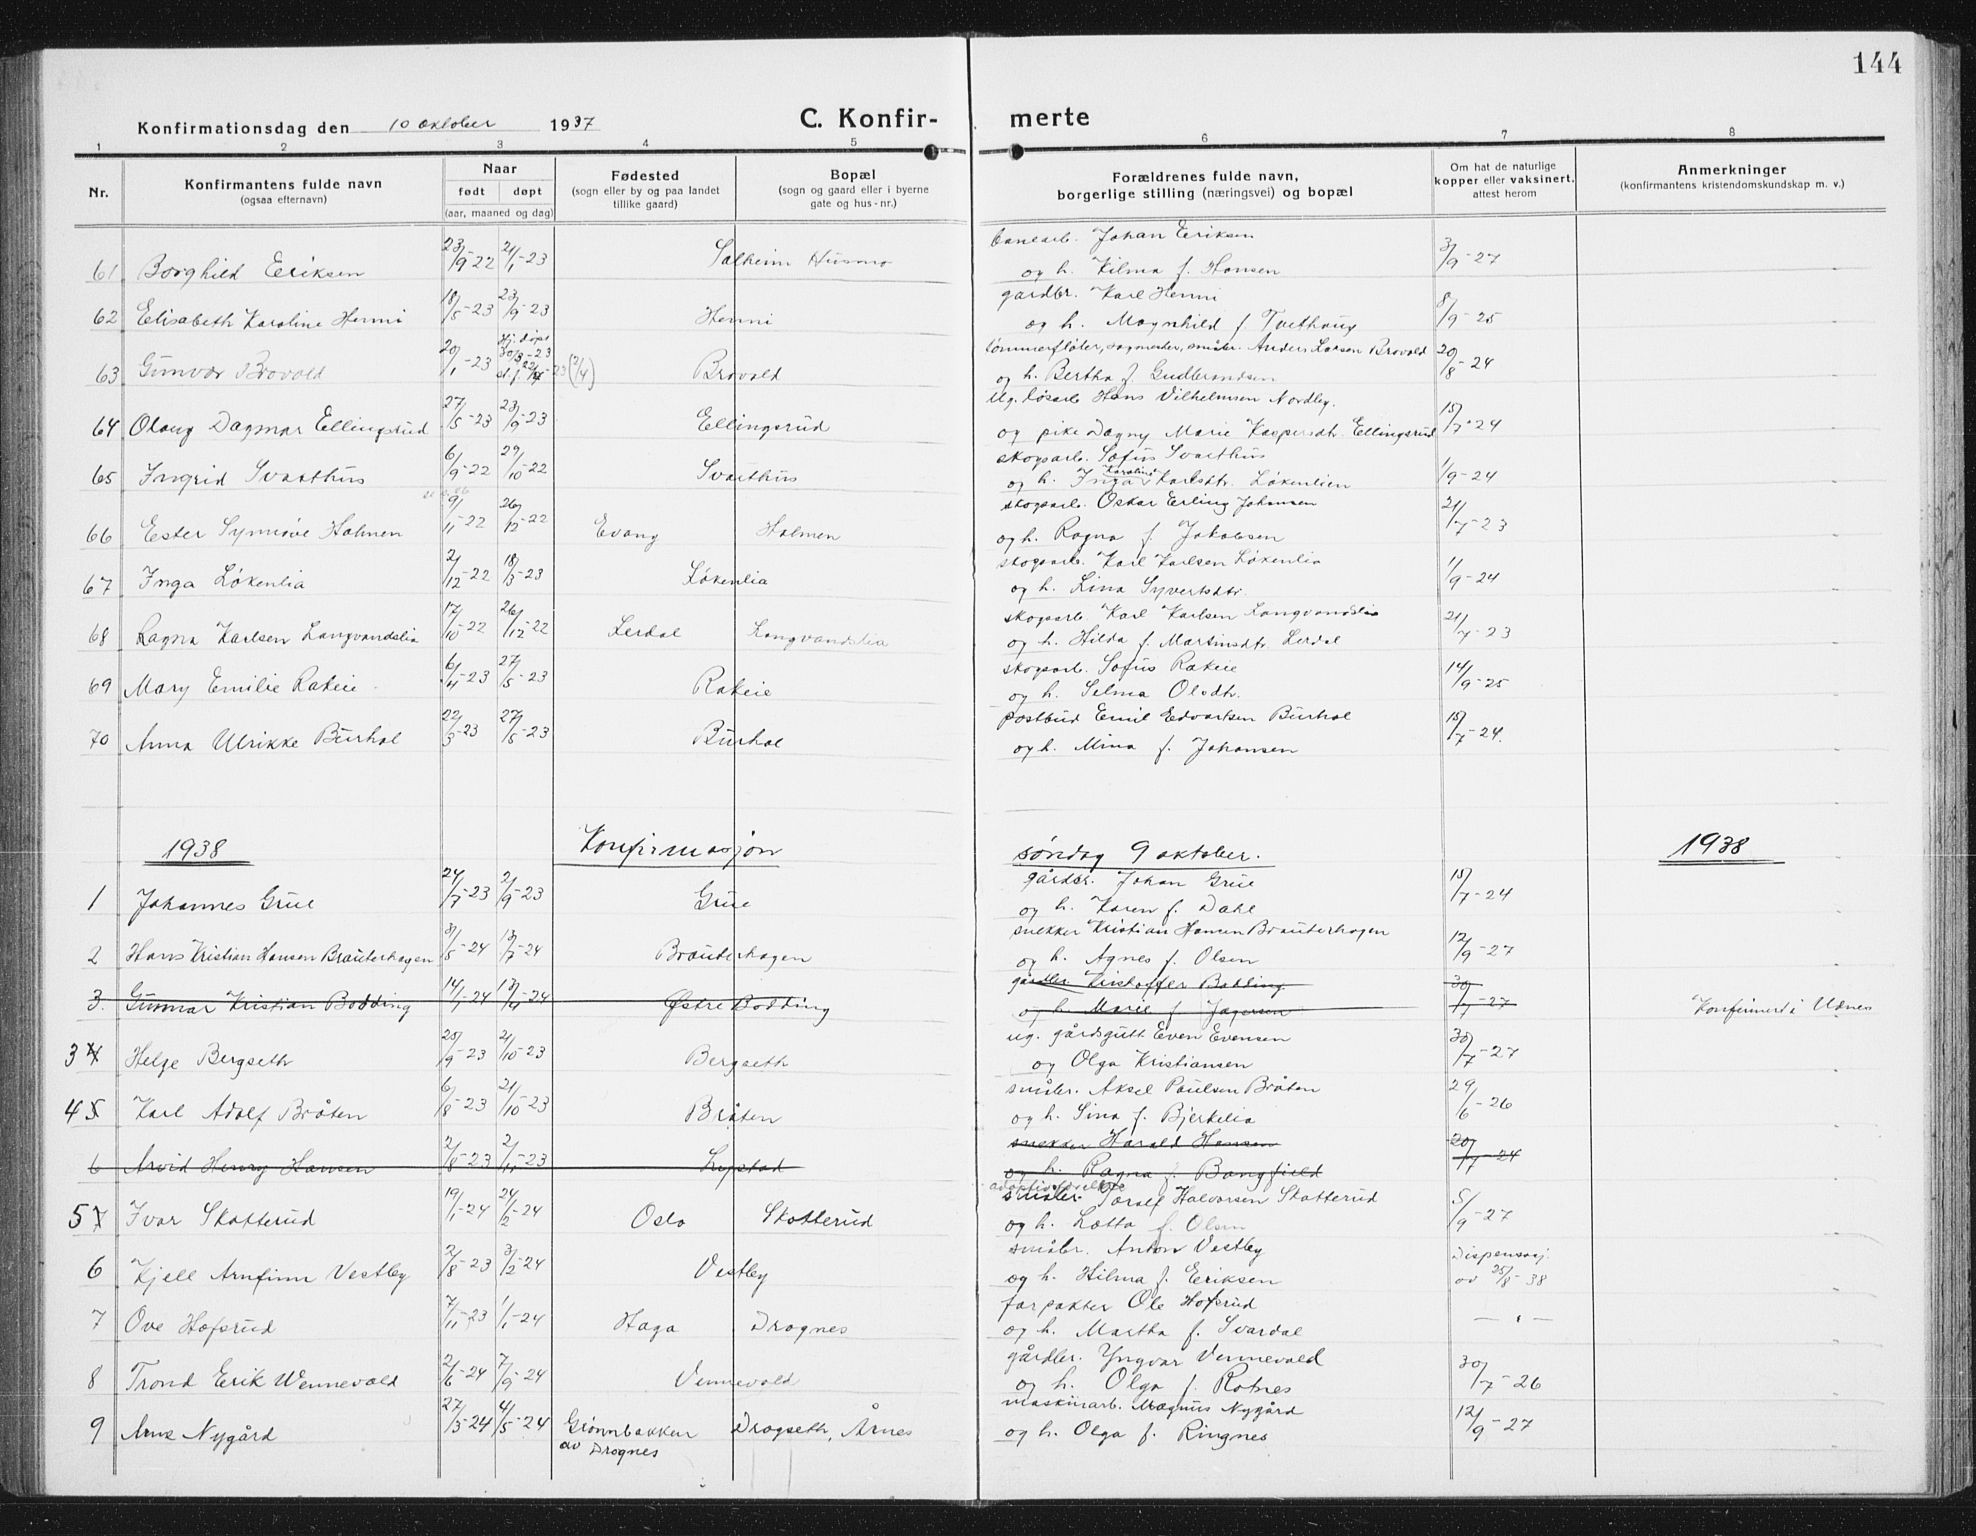 144
C. Konfirmerte
Konfirmationsdag den 10 oktober 1937
1 2 3 4 5 6 7 8
Nr.
Konfirmantens fulde navn
(ogsaa efternavn)
Naar
født døpt
(aar, maaned og dag)
Fødested
(sogn eller by og paa landet
tillike gaard)
Bopæl
(sogn og gaard eller i byerne
gate og hus-nr.)
Forældrenes fulde navn,
borgerlige stilling (næringsvei) og bopæl
Om hat de naturlige
kopper eller vaksinert,
attest herom
Anmerkninger
(konfirmantens kristendomskundskap m. v.)
banearb. Johan Eriksen
61 Borghild Eriksen 23/9-22 21/1-23 Solheim Husmo og h. Hilma f. Hansen 3/9-27
gårdbr. Karl Henni
62 Elisabeth Karoline Henni 18/5-23 23/9-23 Henni og h. Magnhild f. Tvethaug 8/9-25
tømmerfløter, sagmester, småbr. Anders Larsen Brovold
63 Gunvor Brovold 20/1-23 Hj. døpt 30/3-23 Brovold og h. Bertha f. Gudbrandsen 20/8-24
ug. løsarb. Hans Vilhelmsen Nordby.
64 Olaug Dagmar Ellingsrud 27/5-23 23/9-23 Ellingsrud og pike Dagny Marie Kaspersdtr. Ellingsrud 15/7-24
skogsarb. Sofus Svarthus
65 Ingrid Svarthus 6/9-22 29/10-22 Svarthus og h. Inga Karoline Karlsdtr. Løkenlien 1/9-24
skogsarb. Oskar Erling Johansen
66 Ester Synnøve Holmen 9/11-22 26/12-22 Evang Holmen og h. Ragna f. Jakobsen 21/7-23
skogsarb. Karl Karlsen Løkenlia
67 Inga Løkenlia 2/12-22 18/3-23 Løkenlia og h. Lina Syvertsdtr. 1/9-24
skogsarb. Karl Karlsen Langvandslia
68 Ragna Karlsen Langvandslia 17/10-22 26/12-22 Lerdal Langvandslia og h. Hilda f. Martinsdtr. Lerdal 21/7-23
skogsarb. Sofus Rakeie
69 Mary Emilie Rakeie 6/4-23 27/5-23 Rakeie og h. Selma Olsdtr. 14/9-25
postbud Emil Edvartsen Burhol
70 Anna Ulrikke Burhol 22/3-23 27/5-23 Burhol og h. Mina f. Johansen 15/7-24.
1938 Konfirmasjon søndag 9 oktober. 1938
gårdbr. Johan Grue
1 Johannes Grue 24/7-23 2/9-23 Grue og h. Karen f. Dahl 15/7-24
snekker Kristian Hansen Brauterhagen
2 Hans Kristian Hansen Brauterhagen 31/5-24 13/7-24 Brauterhagen og h. Agnes f. Olsen 12/9-27
gårdbr. Kristoffer Bodding
3. Gunnar Kristian Bodding 14/1-24 13/4-24 Østre Bodding og h. Marie f. Jagersen 30/7-27 Konfirmert i Udnes
ug. gårdsgutt Even Evensen
3 4 Helge Bergseth 25/9-23 21/10-23 Bergseth og Olga Kristiansen 30/7-27
småbr. Aksel Paulsen Bråten
4 5 Karl Adolf Bråten 6/8-23 21/10-23 Bråten og h. Sina f. Bjerkelia 29/6-26
snekker Harald Hansen
6 Arvid Henry Hansen 2/8-23 2/11-23 Lystad og h. Ragna f. Bangfield 20/7-24
småbr. Toralf Halvorsen Skotterud
5 7 Ivar Skotterud 19/1-24 24/2-24 Oslo Skotterud og h. Lotta f. Olsen 5/9-27
småbr. Anton Vestby
6 Kjell Arnfinn Vestby 2/8-23 3/2-24 Vestby og h. Hilma f. Eriksen Dispensasj. av 25/8-38
forpakter Ole Hofsrud
7 Ove Hofsrud 7/11-23 1/1-24 Haga Dragnes og h. Martha f. Svardal — " —
gårdbr. Yngvar Vennevold
8 Trond Erik Wennevold 2/6-24 7/9-24 Vennevold og h. Olga f. Rotnes 30/7-26
maskinarb. Magnus Nygård
9 Arne Nygård 27/3-24 4/5-24 Grønnbakken Dragseth, Årnes og h. Olga f. Ringnes 12/9-27
av Dragnes